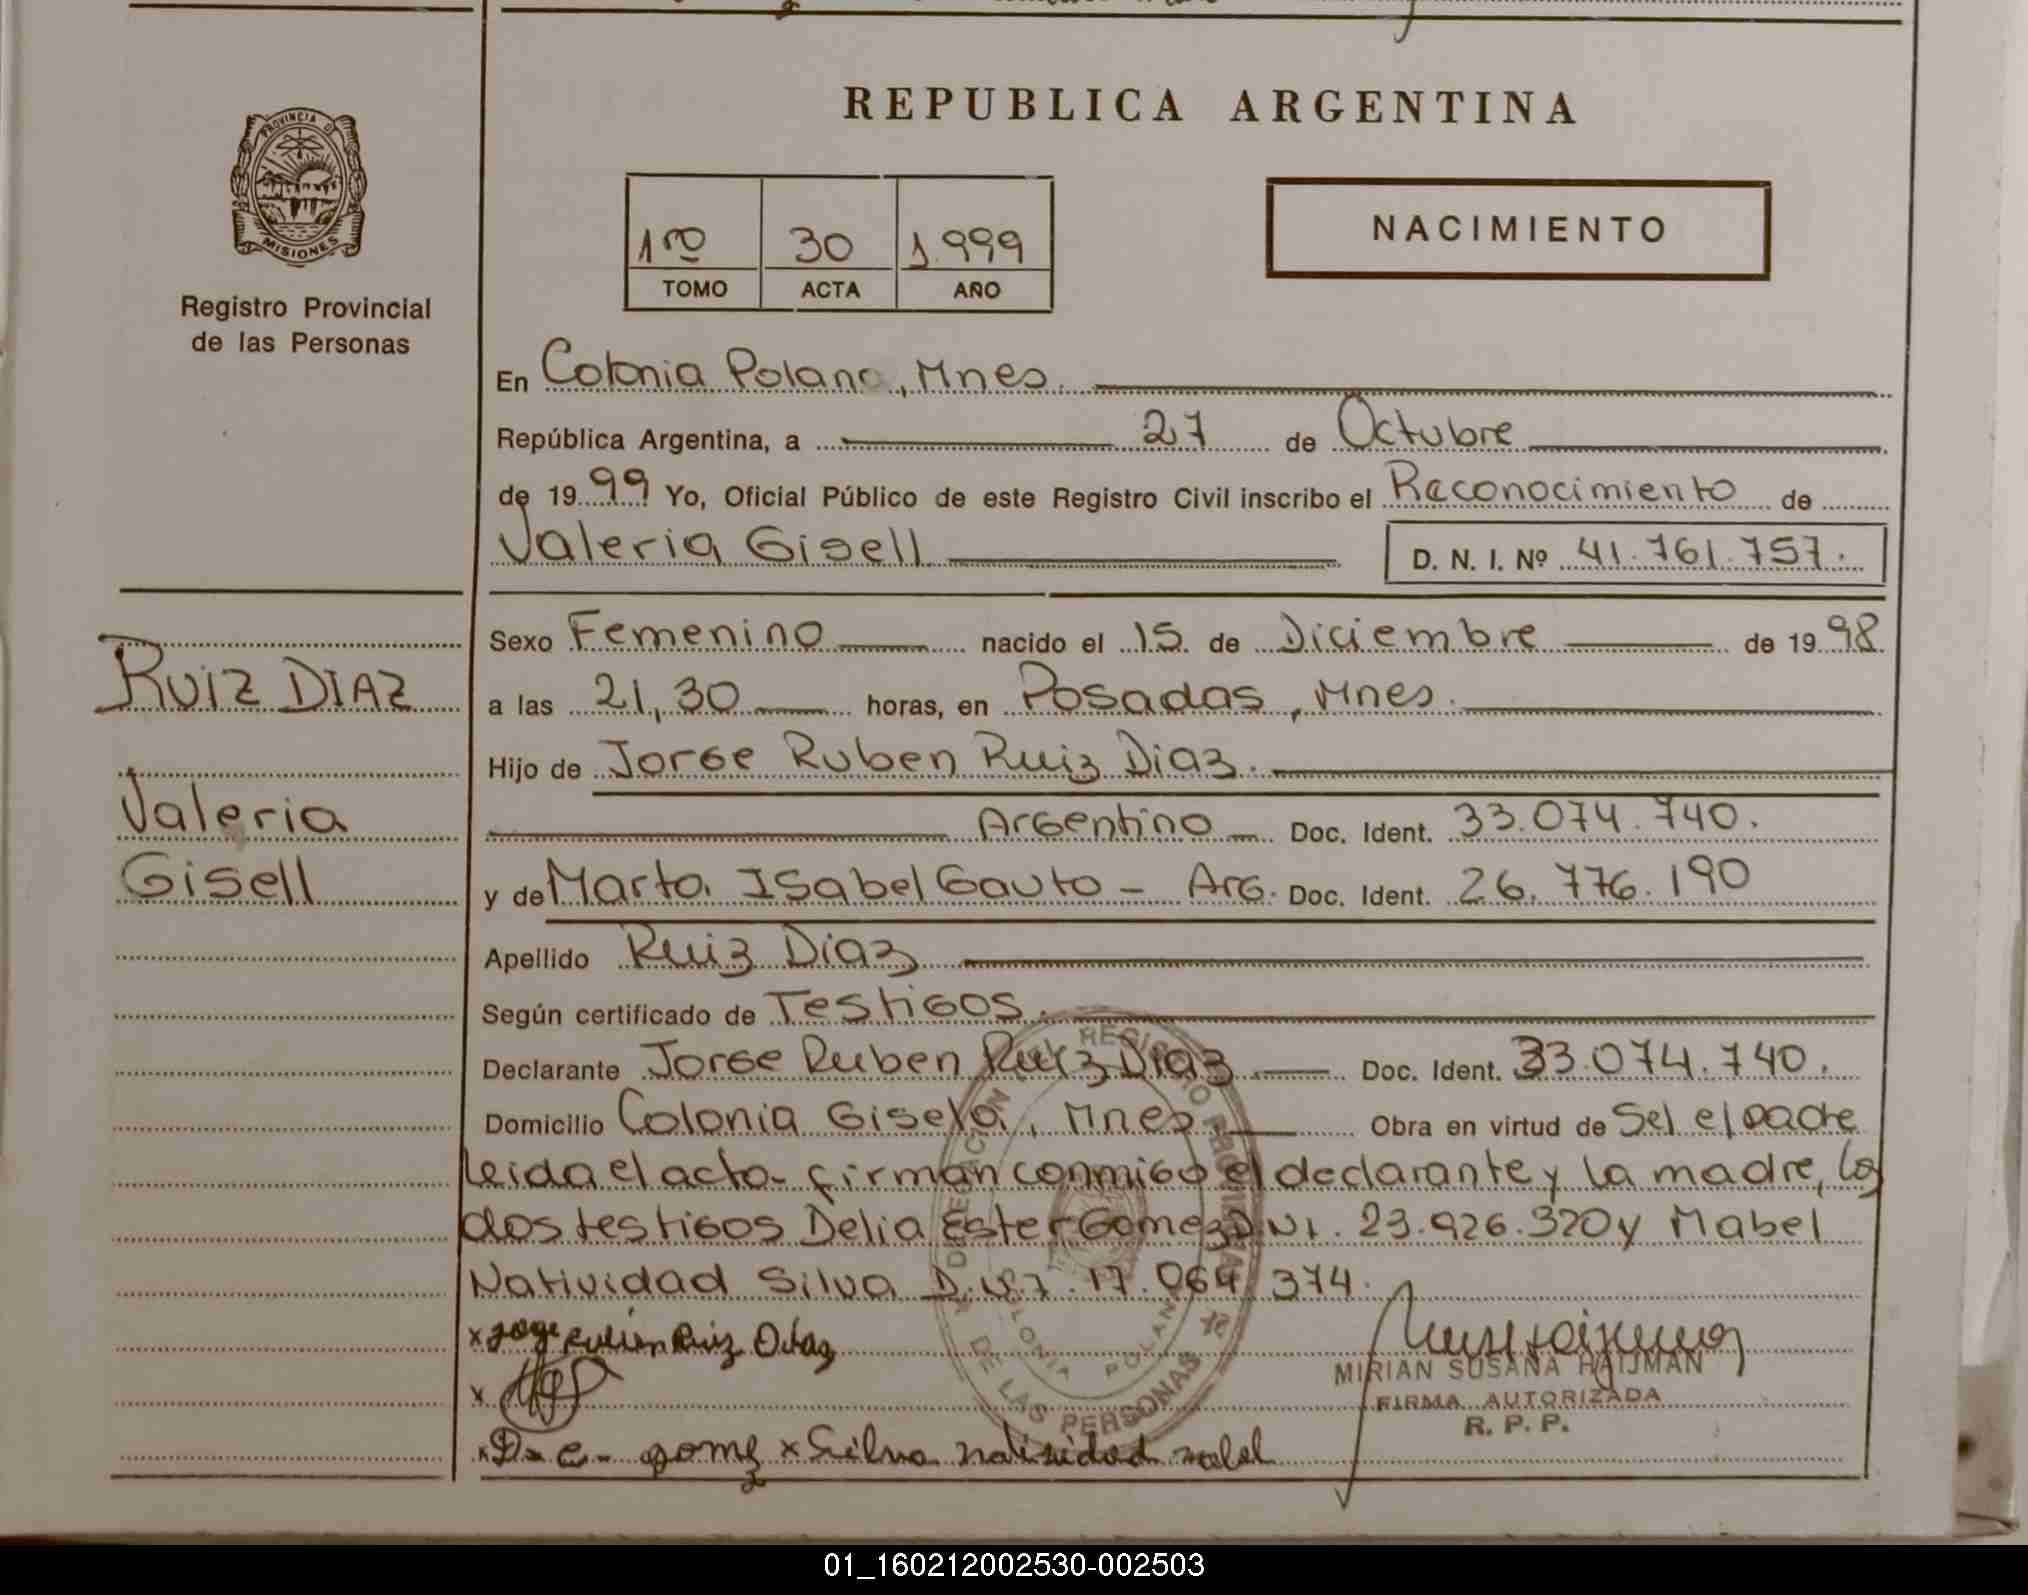 REPUBLICA ARGENTINA
PROVINCIA DE
MISIONES
Registro Provincial
de las Personas
1ro 30 1.999
TOMO ACTA AÑO
NACIMIENTO
En Colonia Polana, Mnes.
República Argentina, a 27 de Octubre
de 1999 Yo, Oficial Público de este Registro Civil inscribo el Reconocimiento de
Valeria Gisell D. N. I. Nº 41.761.757.
RUIZ DIAZ
Valeria
Gisell
Sexo Femenino nacido el 15 de Diciembre de 1998
a las 21,30 horas, en Posadas, Mnes.
Hijo de Jorge Ruben Ruiz Diaz.
Argentino Doc. Ident. 33.074.740.
y de Marta Isabel Gauto - Arg. Doc. Ident. 26.776.190
Apellido Ruiz Diaz
Según certificado de Testigos.
Declarante Jorge Ruben Ruiz Diaz Doc. Ident. 33.074.740.
Domicilio Colonia Gisela, Mnes. Obra en virtud de Sel el padre
leida el acta firman conmigo el declarante y la madre, los
dos testigos Delia Ester Gomez D.N.I. 23.926.320 y Mabel
Natividad Silva D.N.I. 17.064.374.
DELEGACIÓN DEL REGISTRO PROVINCIAL DE LAS PERSONAS
COLONIA POLANA
x Jorge Ruben Ruiz Diaz
MIRIAN SUSANA HAIJMAN
FIRMA AUTORIZADA
R. P. P.
x D- e- gomez x Silva natividad mabel
01_160212002530-002503